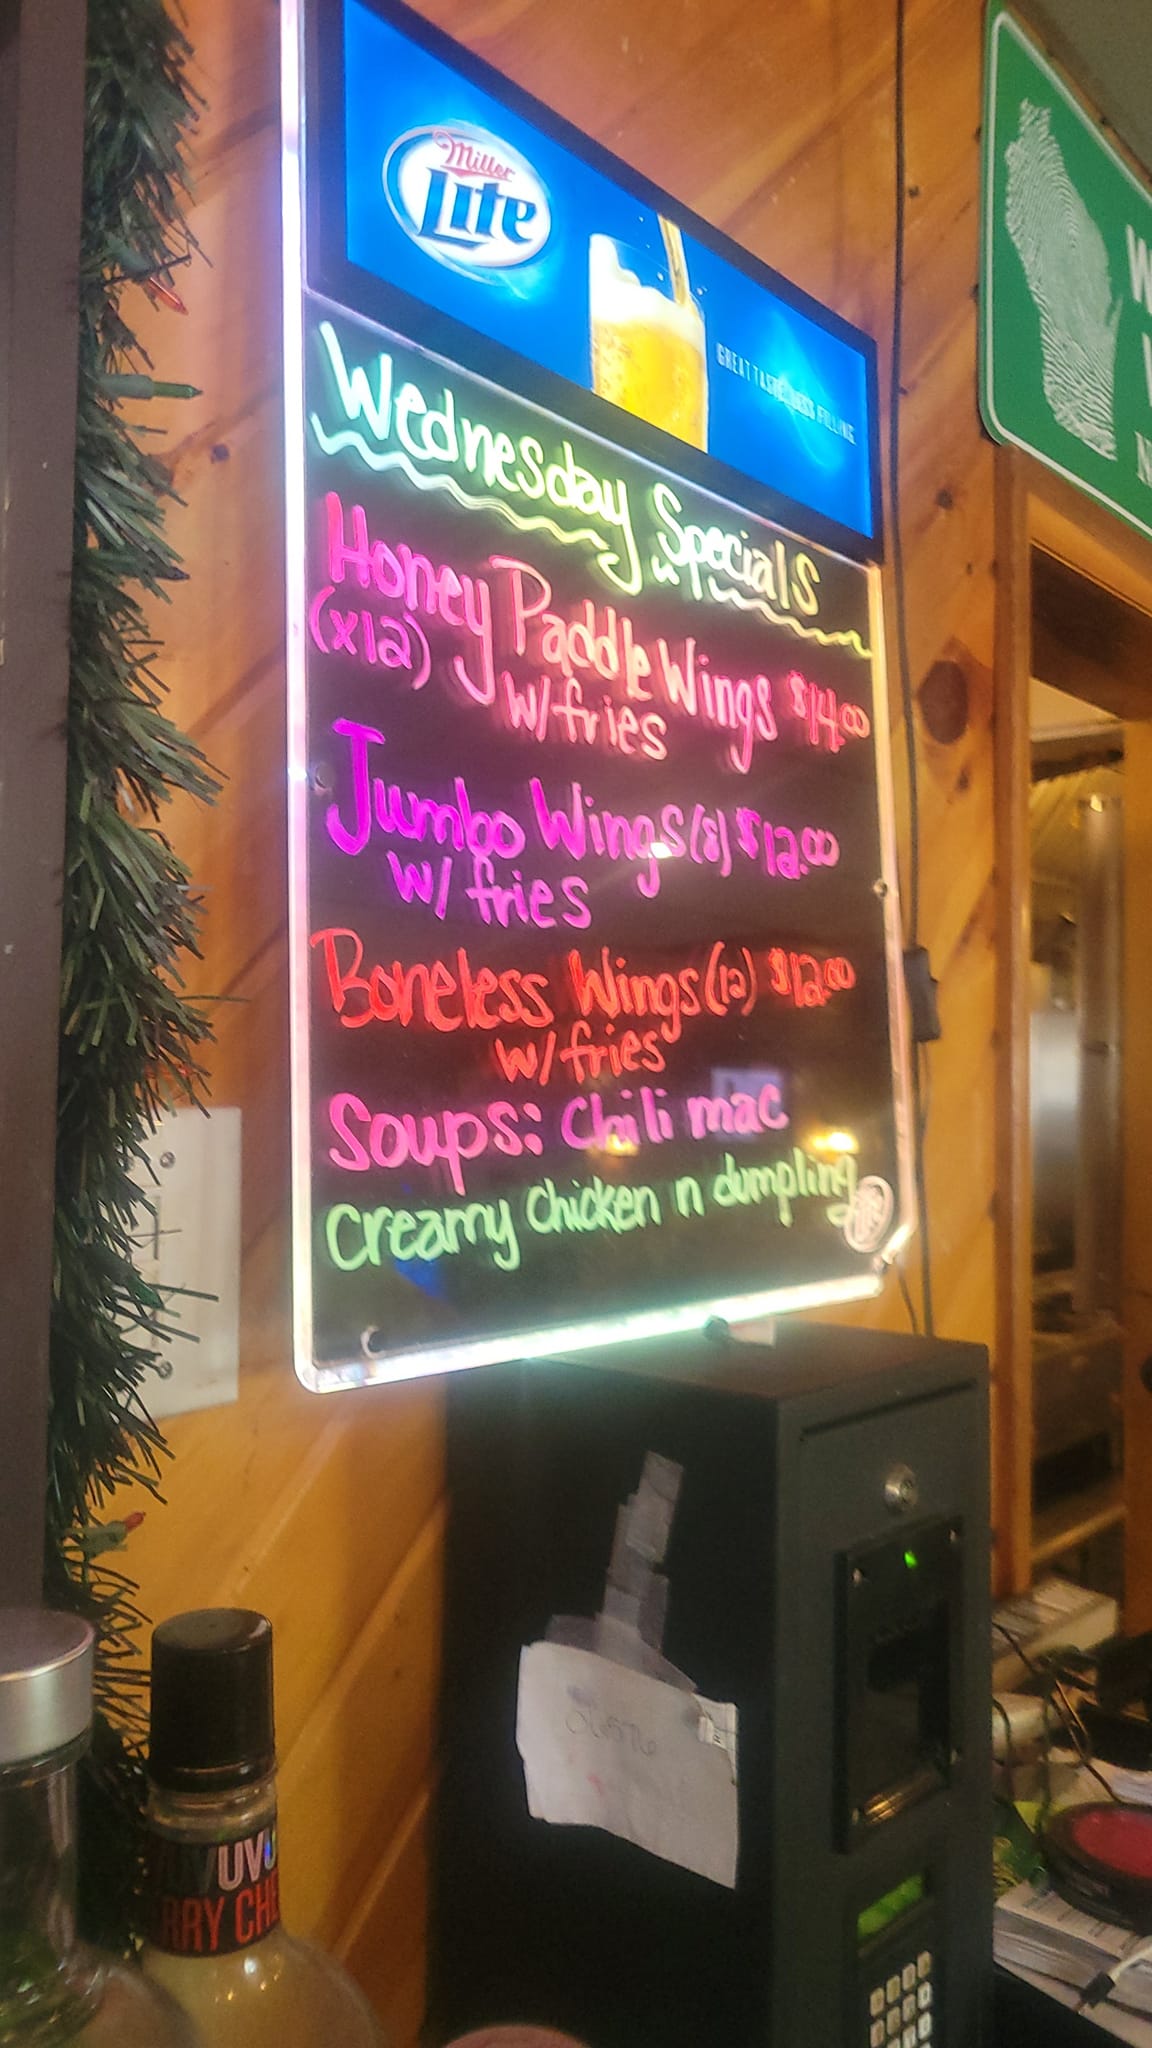 Miller
Lite
GREAT TASTE. LESS FILLING
Wednesday Specials
Honey Paddle Wings $14.00
(x12) w/fries
Jumbo Wings (8) $12.00
w/ fries
Boneless Wings (12) $12.00
w/ fries
Soups: Chili mac
Creamy Chicken n dumpling
W
N
UV
RRY CHE